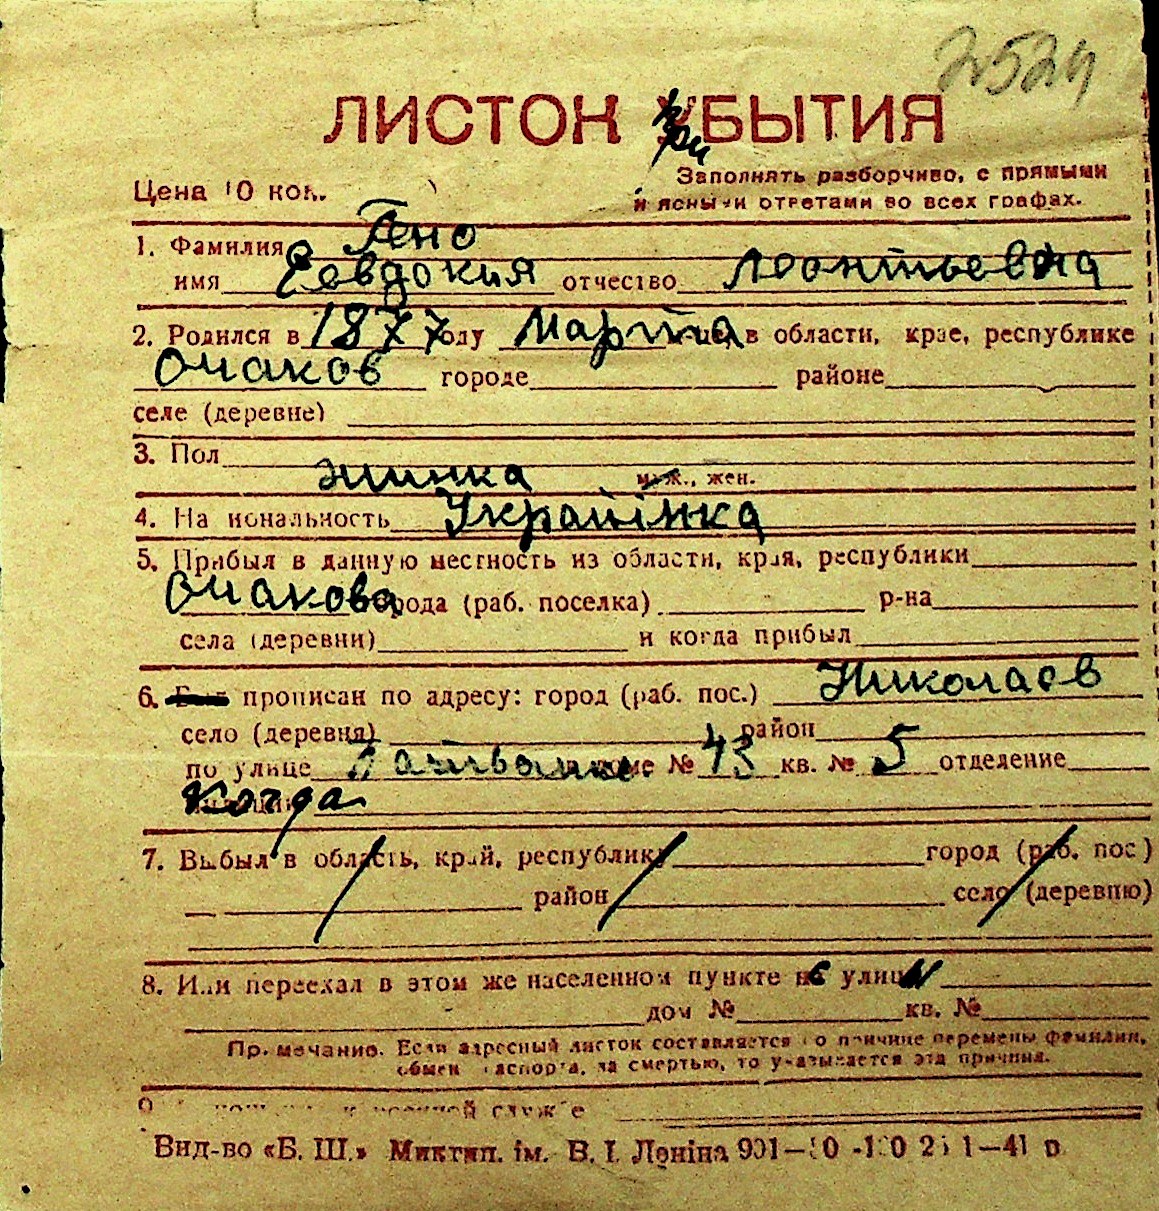 2524
ЛИСТОК УБЫТИЯ
при
Цена 10 коп.
Заполнять разборчиво, с прямыми
и ясными ответами во всех графах.
1. Фамилия Гено
имя Евдокия отчество Леонтьевна
2. Родился в 1877 году Марта м-це, в области, крае, республике
Очаков городе районе
селе (деревне)
3. Пол жинка муж., жен.
4. Национальность Українка
5. Прибыл в данную местность из области, края, республики
Очакова города (раб. поселка) р-на
села (деревни) и когда прибыл
6. Был прописан по адресу: город (раб. пос.) Николаев
село (деревня) район
по улице доме № 43 кв. № 5 отделение
милиции Когда
7. Выбыл в область, край, республику город (раб. пос.)
район село (деревню)
8. Или переехал в этом же населенном пункте с улицы
дом № кв. №
Примечание. Если адресный листок составляется по причине перемены фамилии,
обмен паспорта, за смертью, то указывается эта причина.
9. военной службе
Вид-во «Б. Ш.» Миктип. ім. В. І. Леніна